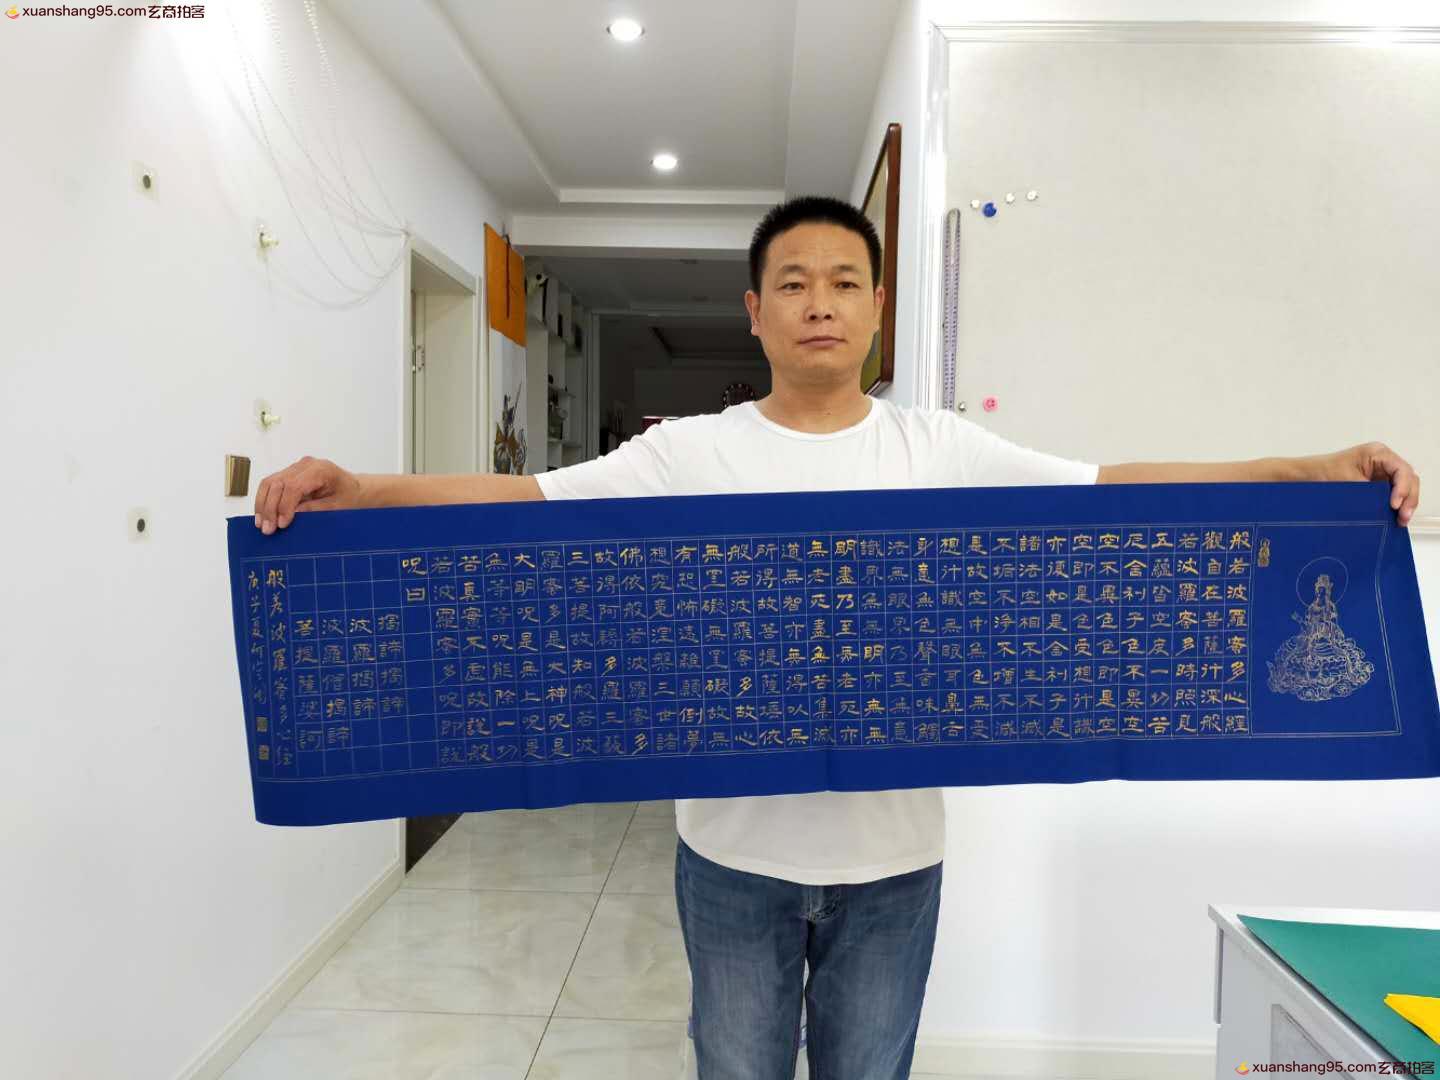 xuanshang95.com玄商拍客
般若波羅蜜多心經
觀自在菩薩行深般
若波羅蜜多時照見
五蘊皆空度一切苦
厄舍利子色不異空
空不異色色即是空
空即是色受想行識
亦復如是舍利子是
諸法空相不生不滅
不垢不淨不增不減
是故空中無色無受
想行識無眼耳鼻舌
身意無色聲香味觸
法無眼界乃至無意
識界無無明亦無無
明盡乃至無老死亦
無老死盡無苦集滅
道無智亦無得以無
所得故菩提薩埵依
般若波羅蜜多故心
無罣礙無罣礙故無
有恐怖遠離顛倒夢
想究竟涅槃三世諸
佛依般若波羅蜜多
故得阿耨多羅三藐
三菩提故知般若波
羅蜜多是大神呪是
大明呪是無上呪是
無等等呪能除一切
苦真實不虛故說般
若波羅蜜多呪即說
呪曰
揭諦揭諦
波羅揭諦
波羅僧揭諦
菩提薩婆訶
般若波羅蜜多心經
庚子夏何
xuanshang95.com玄商拍客